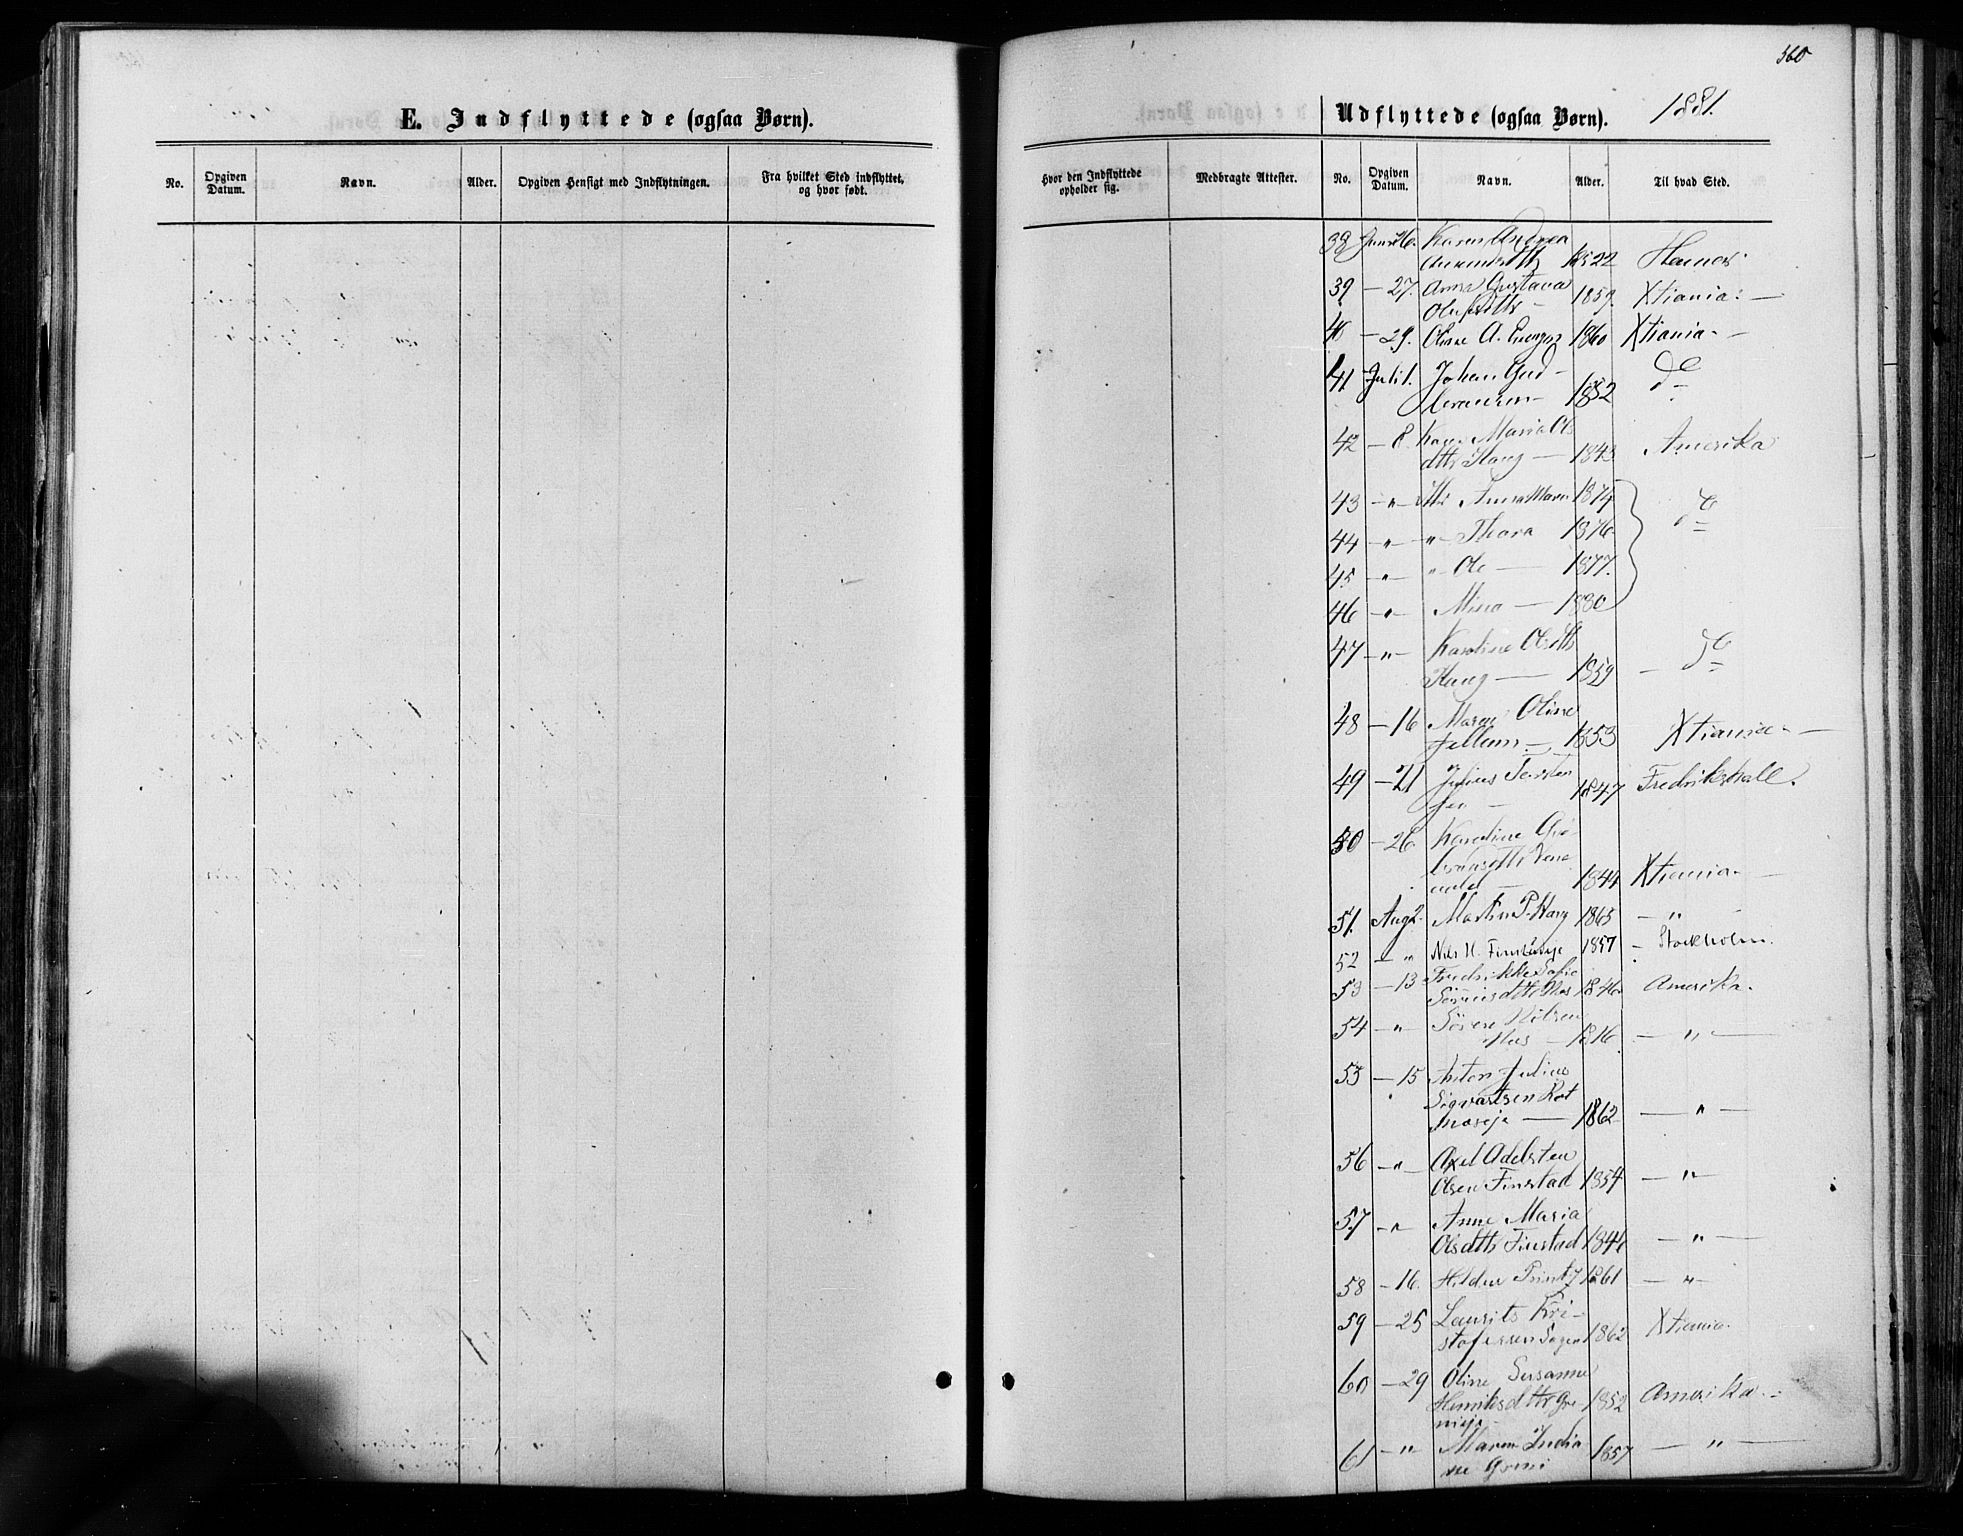 560
E. Indflyttede (ogsaa Børn).
No.
Opgiven Datum.
Navn.
Alder.
Opgiven Hensigt med Indflytningen.
Fra hvilket Sted indflyttet, og hvor født.
Udflyttede (ogsaa Børn). 1881.
Hvor den Indflyttede opholder sig.
Medbragte Attester.
No.
Opgiven Datum.
Navn.
Alder.
Til hvad Sted.
38 Juni 26. Karen Andrea
1852 Hamar
39 — 27. Anna Gustava 1859. Xtiania. —
40 — 29. Oline A. 1860 Xtiania —
41 Juli 1. Johan Gud-
bransen — 1852 do
42 — 8. Karen Maria Ols
dttr Haug — 1843 Amerika
43 — " — Anna Maria 1874
44 — " — " Thora 1876 do
45 — " — " Ole — 1877.
46 — " — Mina — 1880
47 — " — Karoline Olsdttr
Haug — 1859 — do
48 — 16 Maren Oline
Jellum — 1853 Xtiania —
49 — 21 Julius Torsten
sen — 1847 Fredrikshall.
50 — 26 Karoline Gul-
bransdttr
1844 Xtiania —
51. Aug 2. Martin P. Haug 1863 — " —
52 — " Nils H. 1857 — Stockholm.
53 — 13 Fredrikke Sofie
Sørensdttr 1846 Amerika.
54 — " — Søren Nilsen
— 1816 — " —
55 — 15 Anton Julius
Sigvartsen Rot
naseje — 1862 — " —
56 — " — Axel Adelsten
Olsen Finstad 1854 — " —
57 — " — Anne Maria
Olsdttr Finstad 1846 — " —
58 — 16. Hilda Printz 1861 — " —
59 — 25 Laurits Kri-
stofersen 1862 Xtiania.
60 — 29 Oline Susanne
Henriksdttr Gre-
1852 Amerika. —
61 — " — Maren India
ne 1857 — " —